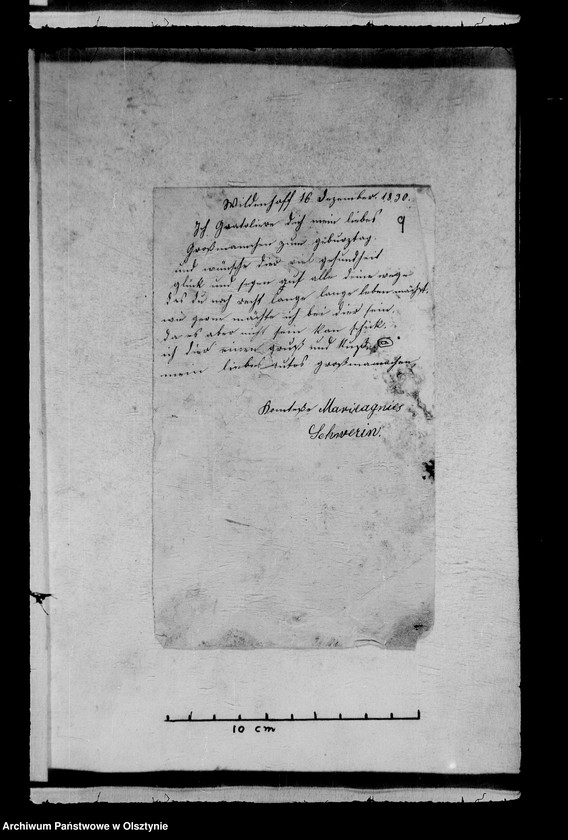 Wildenhoff 16 Dezember. 1830.
9
Ich Gratoliere dich mein liebes
Großmamchen zum geburztag.
und wünsche dier gesundheit
glük und segen auf alle deine wege
das du noch recht lange lange leben möchst.
wie gern möchte ich bei dier sein.
da es aber nicht sein kan schick.
ich dier einen gruß und Kuß
mein liebes gutes großmamachen
Komteße Marieagnies
Schwerin.
10 cm
Archiwum Państwowe w Olsztynie